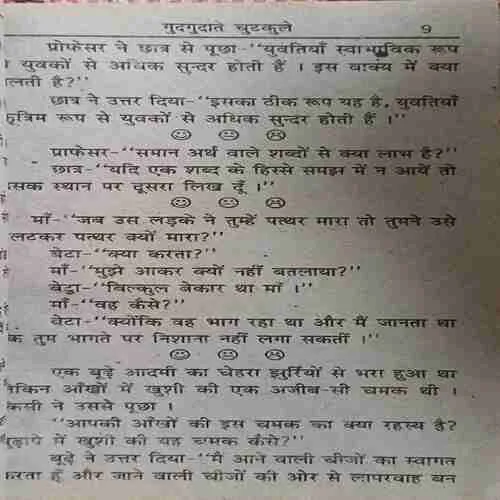 गुदगुदाते चुटकुले 9
प्रोफेसर ने छात्र से पूछा-"युवतियाँ स्वाभाविक रूप
युवकों से अधिक सुन्दर होती हैं । इस वाक्य में क्या
लती है?"
छात्र ने उत्तर दिया-"इसका ठीक रूप यह है, युवतियाँ
कृत्रिम रूप से युवकों से अधिक सुन्दर होती हैं ।"
प्राफेसर-"समान अर्थ वाले शब्दों से क्या लाभ है?"
छात्र-"यदि एक शब्द के हिस्से समझ में न आयें तो
सक स्थान पर दूसरा लिख दूँ ।"
माँ-"जब उस लड़के ने तुम्हें पत्थर मारा तो तुमने उसे
लटकर पत्थर क्यों मारा?"
बेटा-"क्या करता?"
माँ-"मुझे आकर क्यों नहीं बतलाया?"
बेटा-"बिल्कुल बेकार था माँ ।"
माँ-"वह कैसे?"
बेटा-"क्योंकि वह भाग रहा था और मैं जानता था
क तुम भागते पर निशाना नहीं लगा सकतीं ।"
एक बूढ़े आदमी का चेहरा झुर्रियों से भरा हुआ था
लेकिन आँखों में खुशी की एक अजीब-सी चमक थी ।
कसी ने उससे पूछा ।
"आपकी आँखों की इस चमक का क्या रहस्य है?
बुढ़ापे में खुशी की यह चमक कैसे?"
बूढ़े ने उत्तर दिया-"मैं आने वाली चीजों का स्वागत
करता हूँ और जाने वाली चीजों की ओर से लापरवाह बन